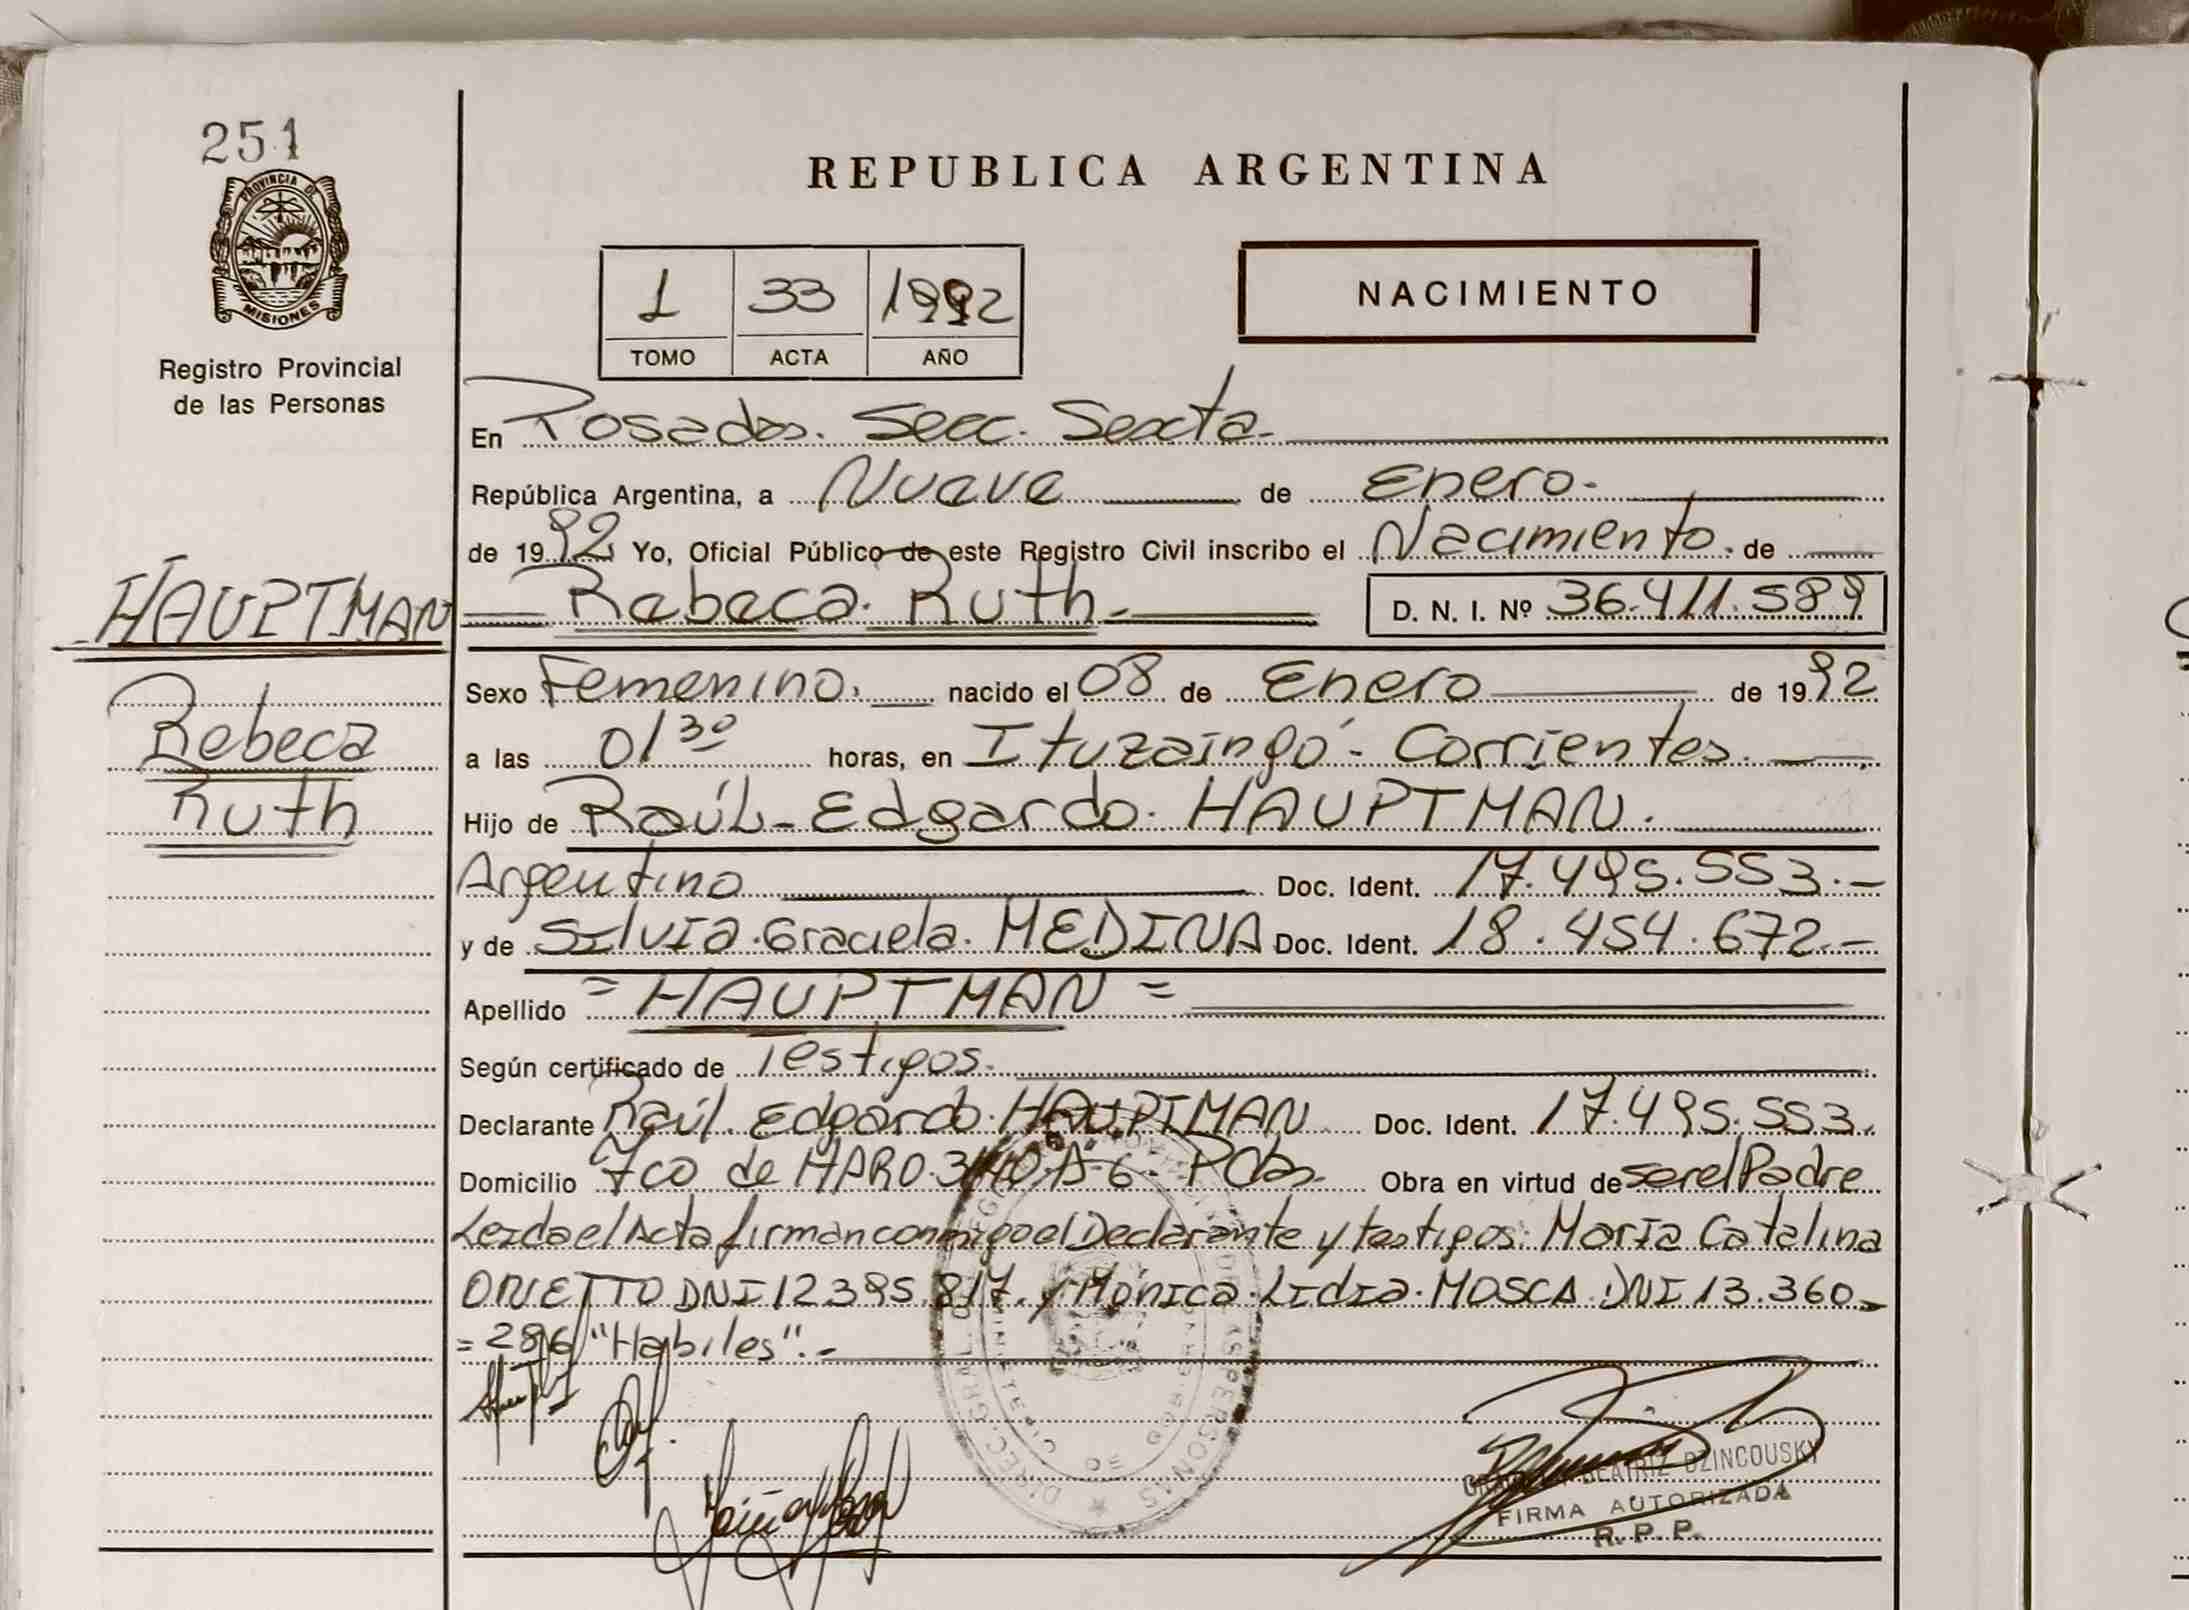 251
PROVINCIA DE
MISIONES
Registro Provincial
de las Personas
REPUBLICA ARGENTINA
1 33 1992
TOMO ACTA AÑO
NACIMIENTO
En Posadas. Secc. Sexta.
República Argentina, a Nueve de Enero.
de 1992 Yo, Oficial Público de este Registro Civil inscribo el Nacimiento. de
HAUPTMAN
Rebeca. Ruth.- D. N. I. Nº 36.411.589
Rebeca
Ruth
Sexo Femenino. nacido el 08 de Enero de 1992
a las 01 30 horas, en Ituzaingó - Corrientes.
Hijo de Raúl - Edgardo. HAUPTMAN.
Argentino Doc. Ident. 17.495.553.-
y de Silvia. Graciela. MEDINA Doc. Ident. 18.454.672.-
Apellido = HAUPTMAN =
Según certificado de Testigos.
Declarante Raúl. Edgardo. HAUPTMAN Doc. Ident. 17.495.553.
Domicilio de Pdas. Obra en virtud de ser el Padre
Leida el Acta firman conmigo el Declarante y testigos: María Catalina
ONETTO DNI 12.395.817. y Mónica. Lidia. MOSCA DNI 13.360-
=286 "Habiles".-
BEATRIZ DZINCOUSKY
FIRMA AUTORIZADA
R. P. P.